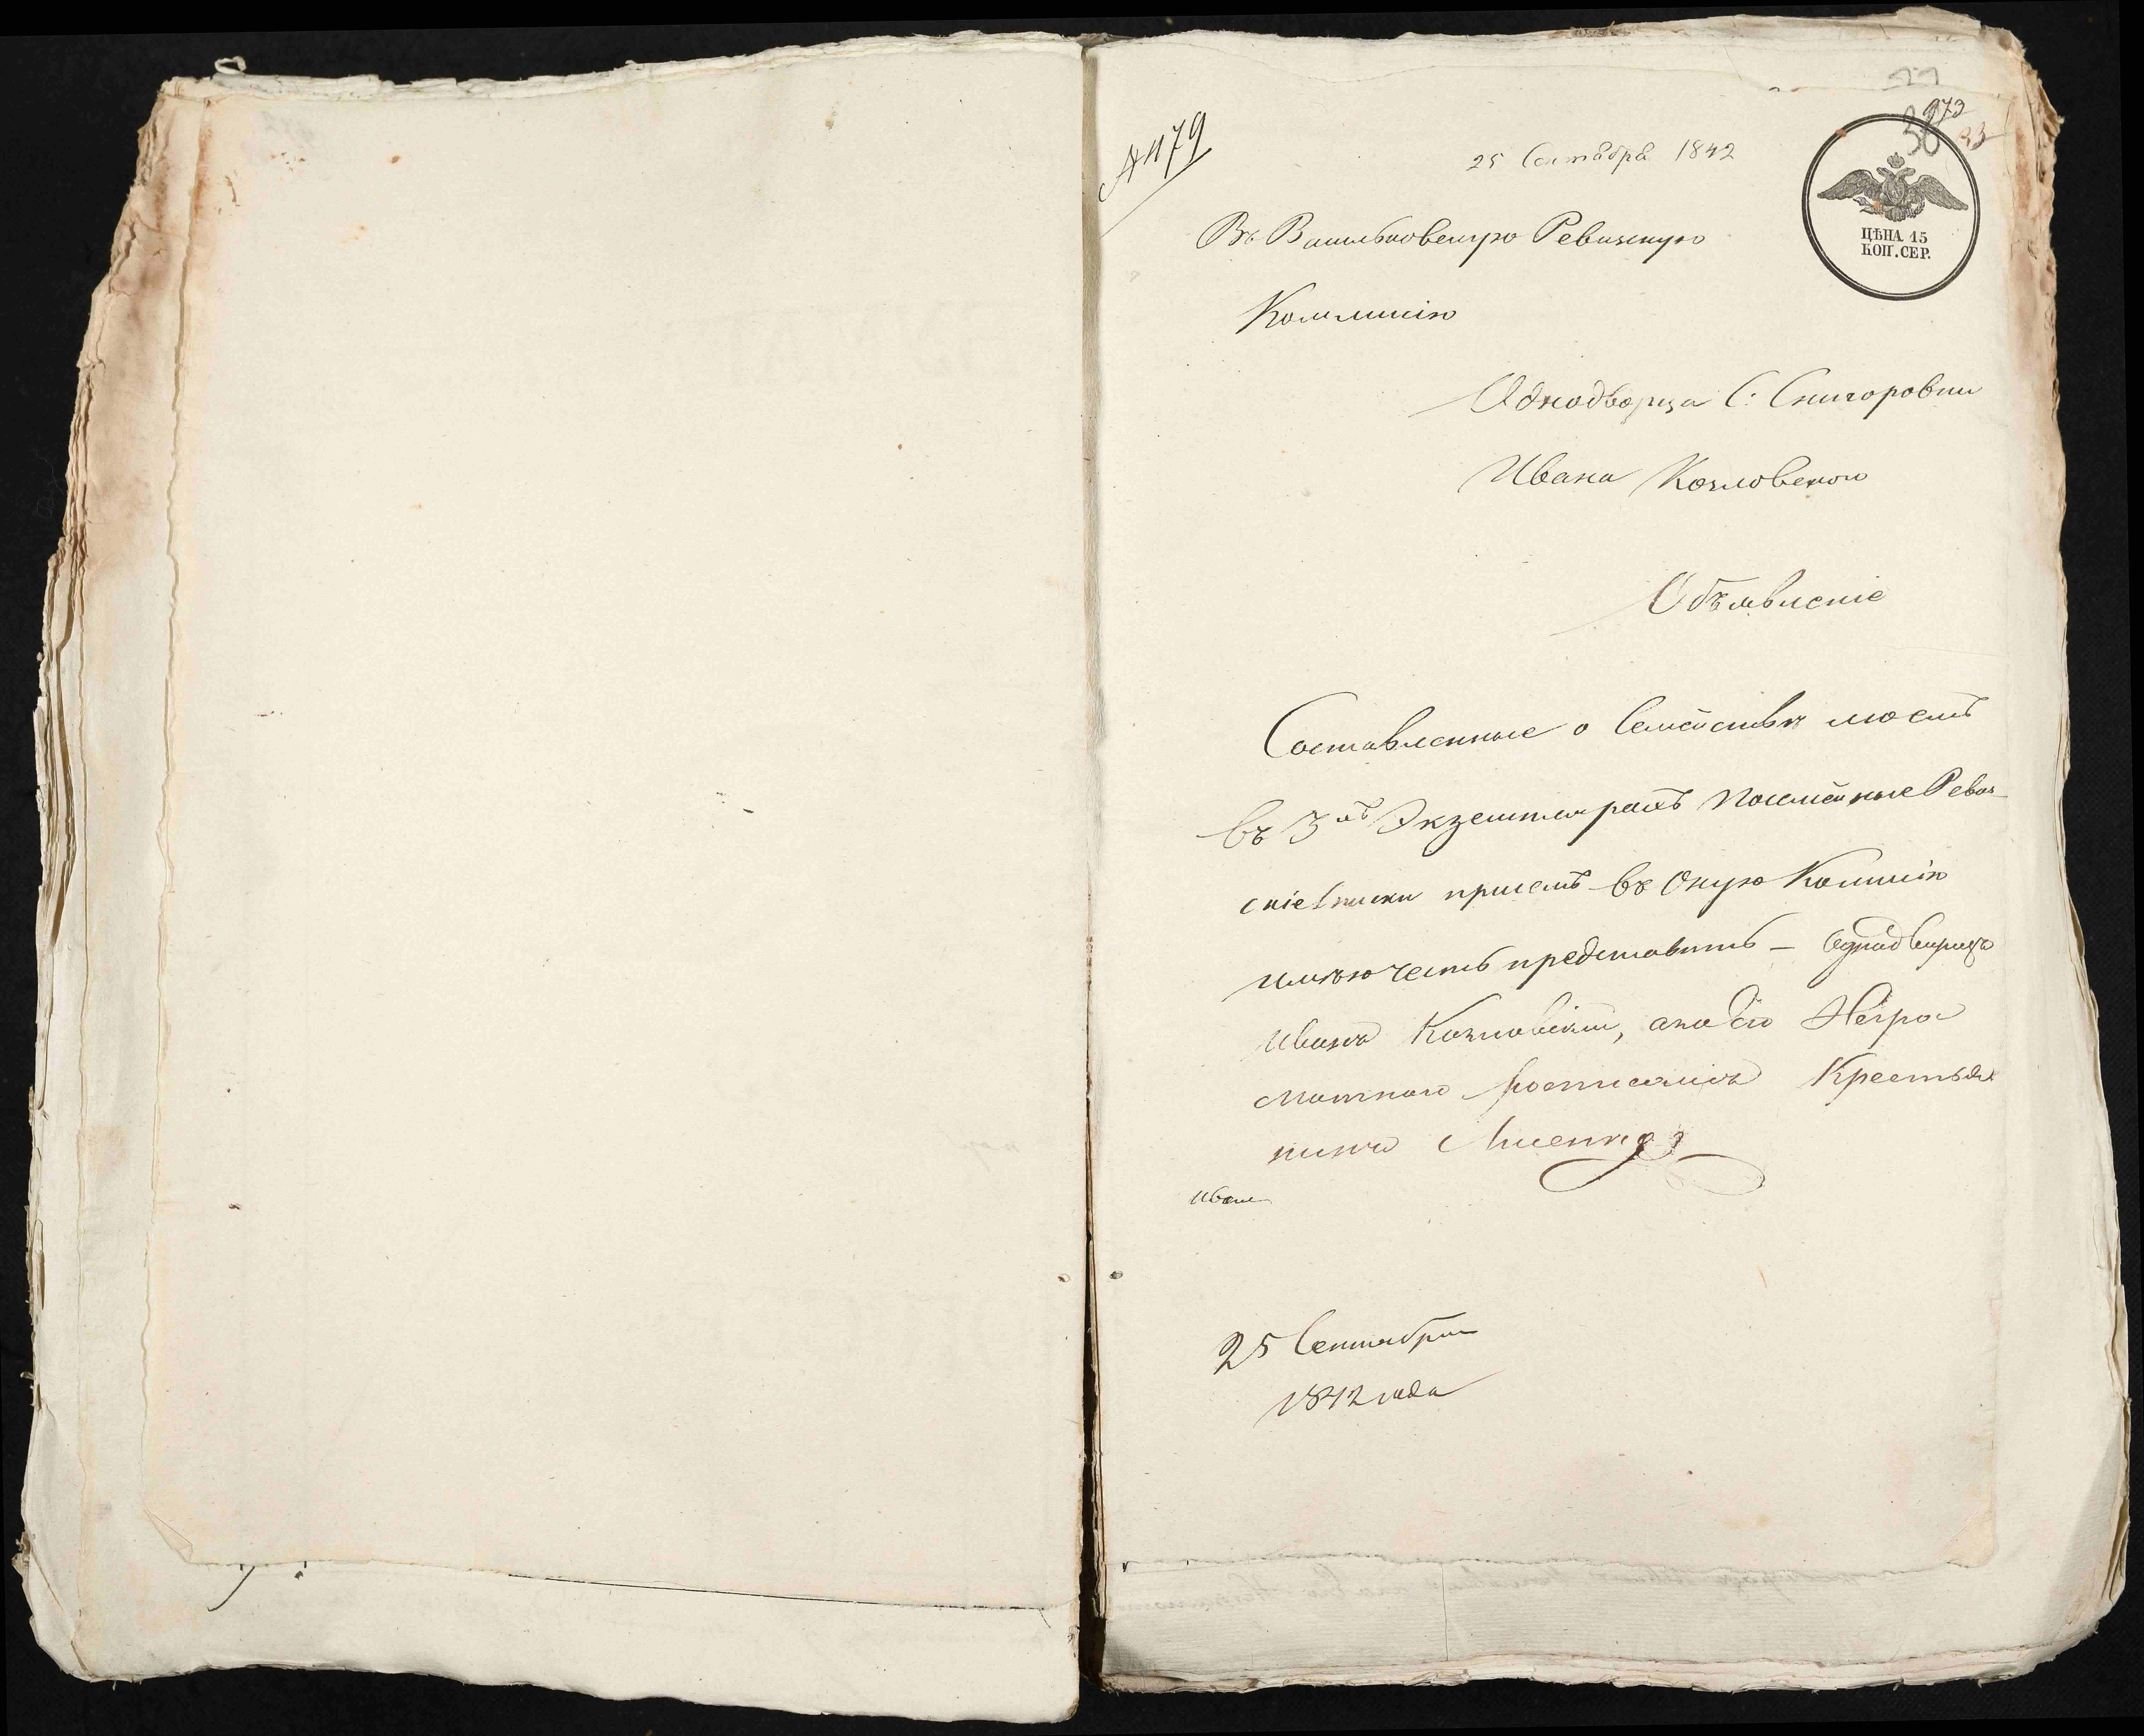 № 179
373
25 Сентября 1842
ЦѢНА 15
КОП. СЕР.
Въ Васильковскую Ревизскую
Коммисію
Однодворца С: Снигоровки
Ивана Козловскаго
Объявленіе
Составленные о Семействѣ моемъ
въ 3хъ Экземплярахъ Посемейные Ревиз
скіе Списки при семъ въ Оную Комисію
имѣю честь представить – Однодворецъ
Иванъ Козловскій, а но его Негра
мотного росписался Крестья
нинъ Лисенко
Иван
25 Сентября
1842 года